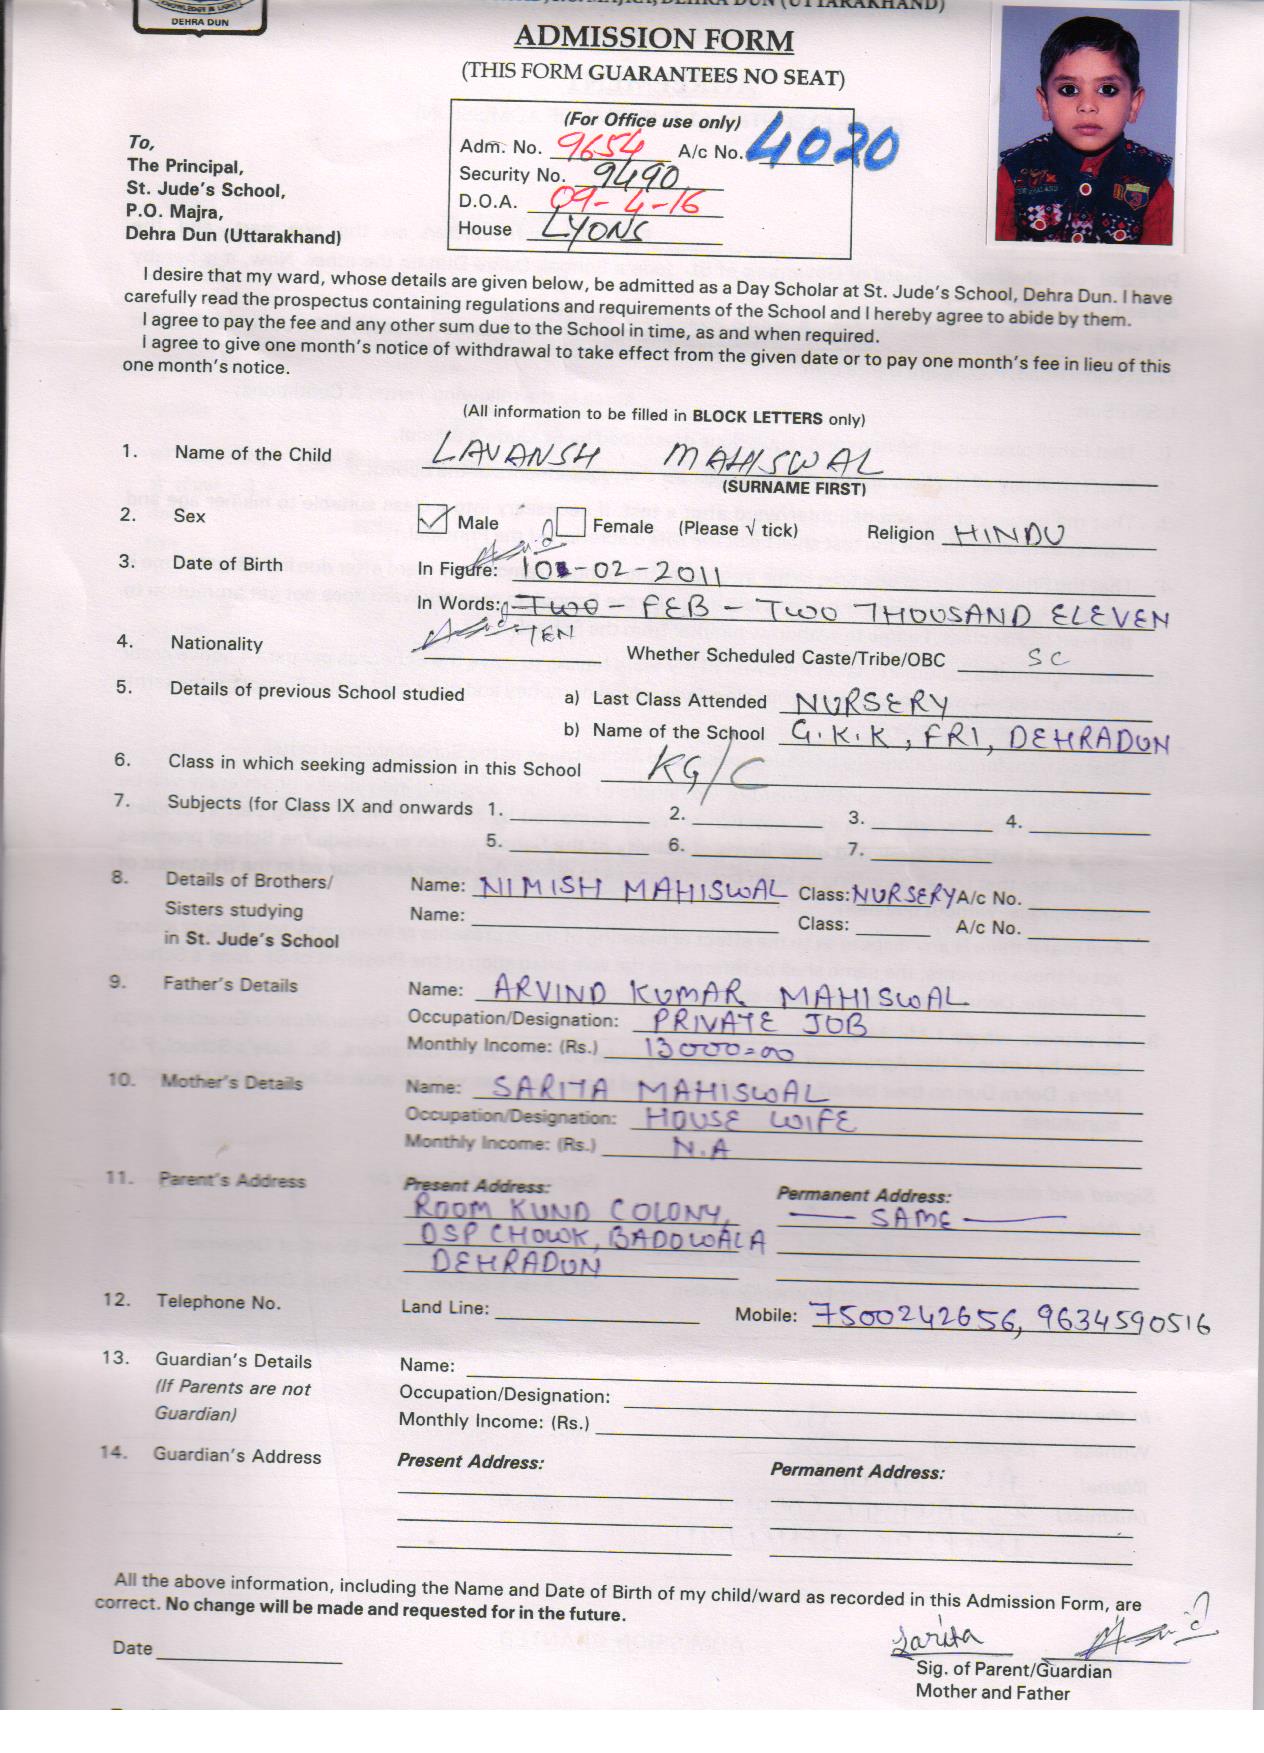 KNOWLEDGE IS LIGHT
DEHRA DUN
DEHRA DUN (UTTARAKHAND)
ADMISSION FORM
(THIS FORM GUARANTEES NO SEAT)
(For Office use only)
Adm. No. 9654 A/c No. 4020
Security No. 9490
D.O.A. 09-4-16
House LYONS
To,
The Principal,
St. Jude's School,
P.O. Majra,
Dehra Dun (Uttarakhand)
I desire that my ward, whose details are given below, be admitted as a Day Scholar at St. Jude's School, Dehra Dun. I have
carefully read the prospectus containing regulations and requirements of the School and I hereby agree to abide by them.
I agree to pay the fee and any other sum due to the School in time, as and when required.
I agree to give one month's notice of withdrawal to take effect from the given date or to pay one month's fee in lieu of this
one month's notice.
(All information to be filled in BLOCK LETTERS only)
1. Name of the Child LAVANSH MAHISWAL
(SURNAME FIRST)
2. Sex Male Female (Please √ tick) Religion HINDU
3. Date of Birth In Figure: 10-02-2011
In Words: TWO - FEB - TWO THOUSAND ELEVEN
TEN
4. Nationality Whether Scheduled Caste/Tribe/OBC SC
5. Details of previous School studied a) Last Class Attended NURSERY
b) Name of the School G.K.K, FRI, DEHRADUN
6. Class in which seeking admission in this School KG/C
7. Subjects (for Class IX and onwards 1. 2. 3. 4.
5. 6. 7.
8. Details of Brothers/ Name: NIMISH MAHISWAL Class: NURSERY A/c No.
Sisters studying Name: Class: A/c No.
in St. Jude's School
9. Father's Details Name: ARVIND KUMAR MAHISWAL
Occupation/Designation: PRIVATE JOB
Monthly Income: (Rs.) 13000=00
10. Mother's Details Name: SARITA MAHISWAL
Occupation/Designation: HOUSE WIFE
Monthly Income: (Rs.) N.A
11. Parent's Address Present Address: Permanent Address:
ROOM KUND COLONY, SAME
DSP CHOWK, BADOWALA
DEHRADUN
12. Telephone No. Land Line: Mobile: 7500242656, 9634590516
13. Guardian's Details Name:
(If Parents are not Occupation/Designation:
Guardian) Monthly Income: (Rs.)
14. Guardian's Address Present Address: Permanent Address:
All the above information, including the Name and Date of Birth of my child/ward as recorded in this Admission Form, are
correct. No change will be made and requested for in the future.
Sarita
Date
Sig. of Parent/Guardian
Mother and Father